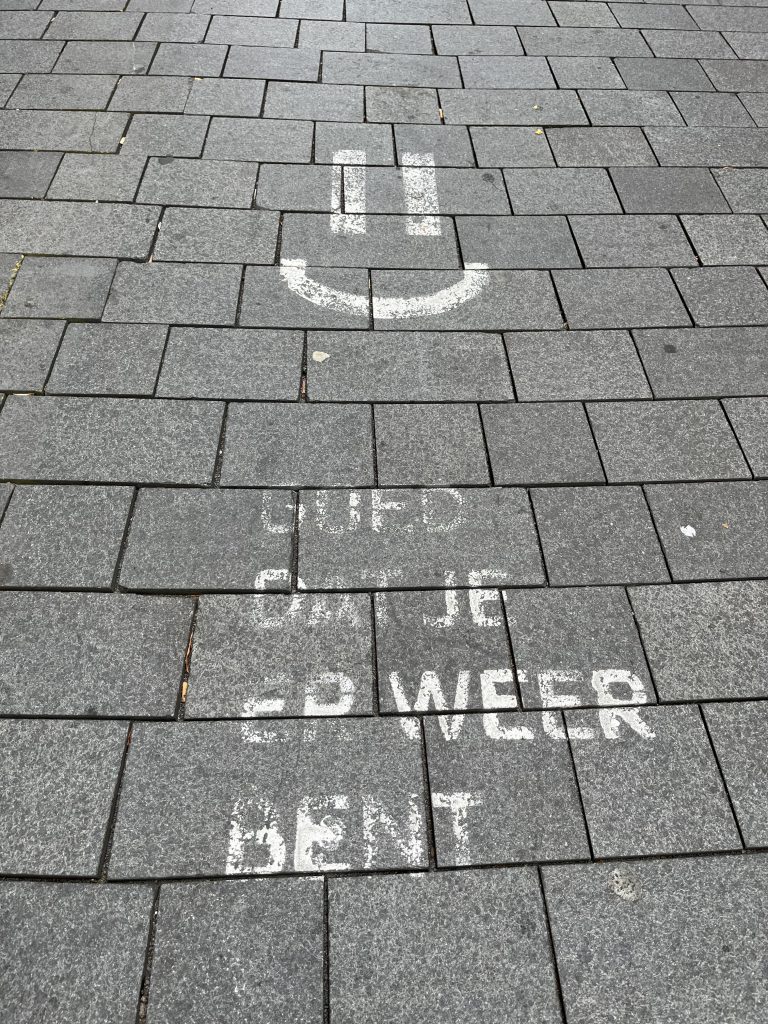 GOED
DAT JE
ER WEER
BENT